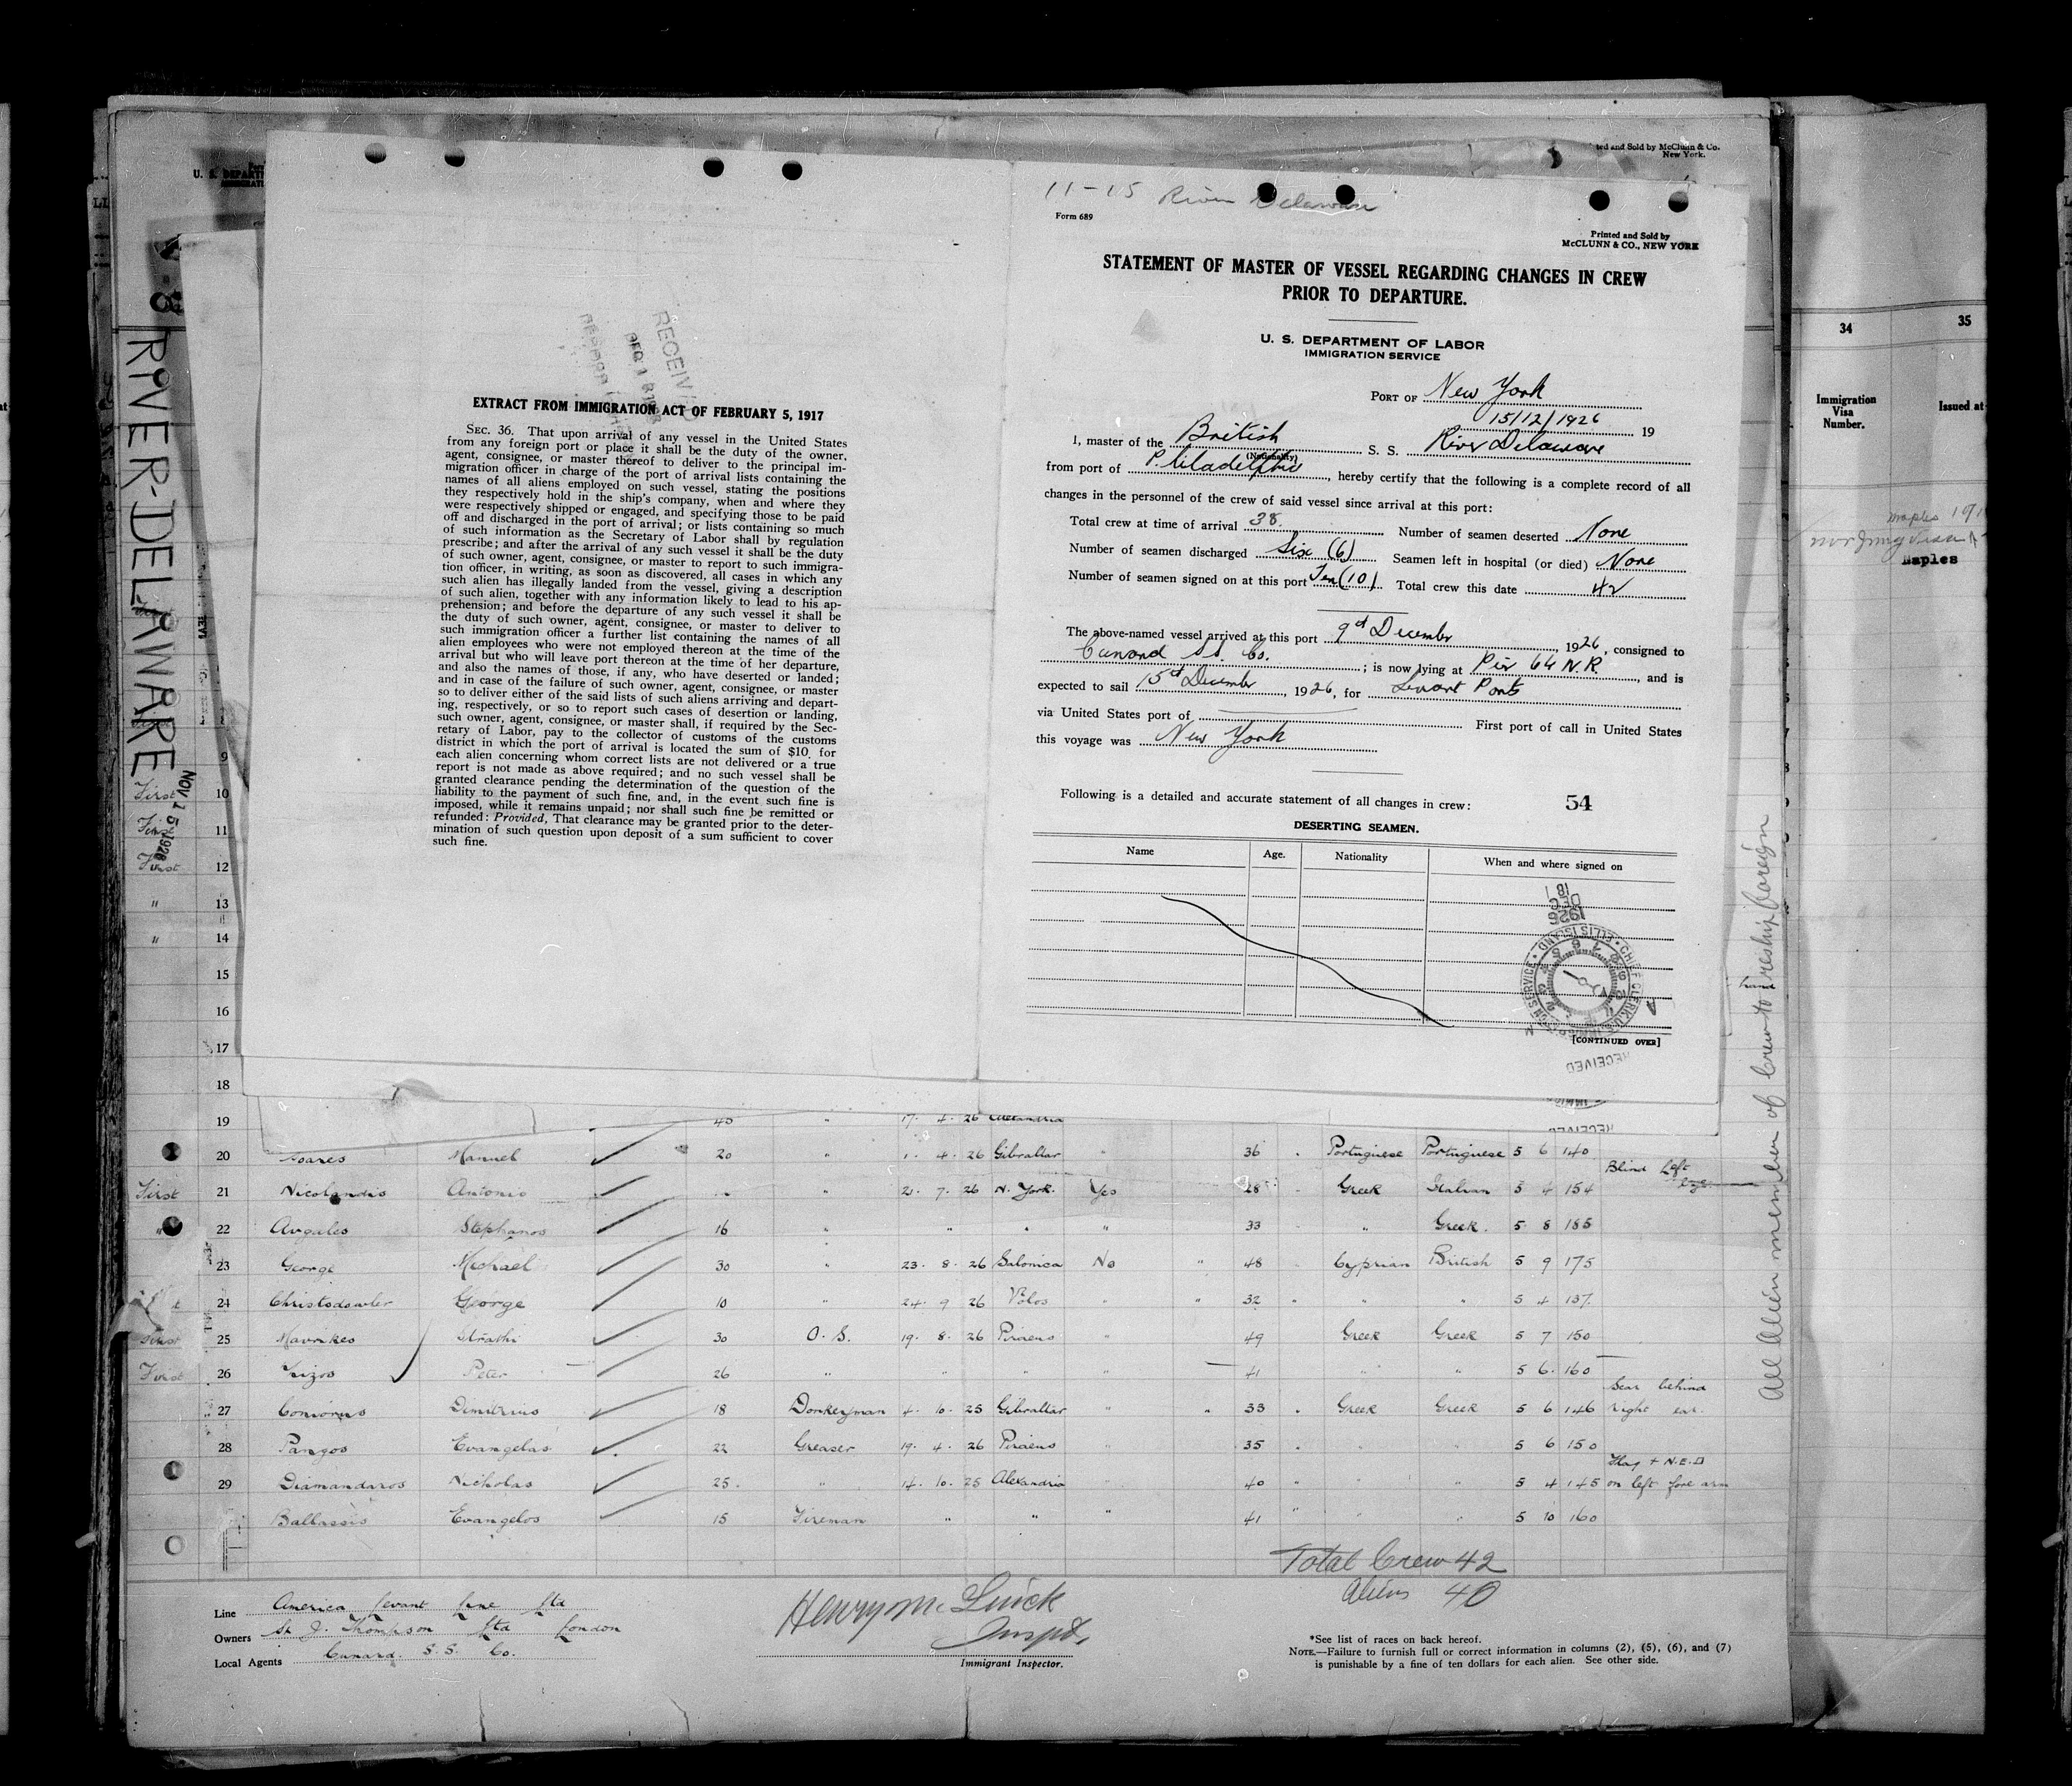 U. S. DEPART
ted and Sold by McClunn & Co.
New York.
11-15 River Delaware
Form 689
Printed and Sold by
McCLUNN & CO., NEW YORK
STATEMENT OF MASTER OF VESSEL REGARDING CHANGES IN CREW
PRIOR TO DEPARTURE.
U. S. DEPARTMENT OF LABOR
IMMIGRATION SERVICE
PORT OF New York
15/12/1926 19
I, master of the British S. S. River Delaware
(Nationality)
from port of Philadelphia, hereby certify that the following is a complete record of all
changes in the personnel of the crew of said vessel since arrival at this port:
Total crew at time of arrival 38. Number of seamen deserted None
Number of seamen discharged Six (6) Seamen left in hospital (or died) None
Number of seamen signed on at this port Ten (10) Total crew this date 42
The above-named vessel arrived at this port 9th December, 1926, consigned to
Cunard S.S. Co.; is now lying at Pier 64 N.R, and is
expected to sail 15th December, 1926, for Levant Ports
via United States port of First port of call in United States
this voyage was New York
Following is a detailed and accurate statement of all changes in crew: 54
DESERTING SEAMEN.
Name Age. Nationality When and where signed on
18 1
DEC
1926
CHIEF CLERK U.S. IMMIGRATION SERVICE • ELLIS ISLAND •
[CONTINUED OVER]
RECEIVED
RECEIVED
RECEIV
EXTRACT FROM IMMIGRATION ACT OF FEBRUARY 5, 1917
SEC. 36. That upon arrival of any vessel in the United States
from any foreign port or place it shall be the duty of the owner,
agent, consignee, or master thereof to deliver to the principal im-
migration officer in charge of the port of arrival lists containing the
names of all aliens employed on such vessel, stating the positions
they respectively hold in the ship's company, when and where they
were respectively shipped or engaged, and specifying those to be paid
off and discharged in the port of arrival; or lists containing so much
of such information as the Secretary of Labor shall by regulation
prescribe; and after the arrival of any such vessel it shall be the duty
of such owner, agent, consignee, or master to report to such immigra-
tion officer, in writing, as soon as discovered, all cases in which any
such alien has illegally landed from the vessel, giving a description
of such alien, together with any information likely to lead to his ap-
prehension; and before the departure of any such vessel it shall be
the duty of such owner, agent, consignee, or master to deliver to
such immigration officer a further list containing the names of all
alien employees who were not employed thereon at the time of the
arrival but who will leave port thereon at the time of her departure,
and also the names of those, if any, who have deserted or landed;
and in case of the failure of such owner, agent, consignee, or master
so to deliver either of the said lists of such aliens arriving and depart-
ing, respectively, or so to report such cases of desertion or landing,
such owner, agent, consignee, or master shall, if required by the Sec-
retary of Labor, pay to the collector of customs of the customs
district in which the port of arrival is located the sum of $10 for
each alien concerning whom correct lists are not delivered or a true
report is not made as above required; and no such vessel shall be
granted clearance pending the determination of the question of the
liability to the payment of such fine, and, in the event such fine is
imposed, while it remains unpaid; nor shall such fine be remitted or
refunded: Provided, That clearance may be granted prior to the deter-
mination of such question upon deposit of a sum sufficient to cover
such fine.
RIVER-DELAWARE
NOV 15 1926
9
First 10
First 11
First 12
" 13
" 14
15
16
17
18
19 40 " 17. 4. 26 Alexandria
20 Soares Manuel 20 " 1. 4. 26 Gibraltar " 36 " Portuguese Portuguese 5 6 140
Blind Left
First 21 Nicolandis Antonio " 2. 7. 26 N. York. Yes 28 Greek Italian 5 4 154 eye
" 22 Avgales Stephanos 16 " " " " 33 " Greek. 5 8 185
23 George Michael 30 " 23. 8. 26 Salonica No " 48 Cyprian British 5 9 175
24 Christodowler George 10 " 24. 9 26 Volos " " 32 " " " 5 4 137
First 25 Mavrikes Strathi 30 O. S. 19. 8. 26 Piraeus " 49 Greek Greek 5 7 150
First 26 Peter 26 " " " " 41 " " 5 6. 160
Scar behind
27 Coniorus Dimitrius 18 Donkeyman 4. 10. 25 Gibraltar " " 33 " Greek Greek 5 6 146 right ear.
28 Pangos Evangelas 22 Greaser 19. 4. 26 Piraeus " 35 " " " 5 6 150
Flag + N.E.D
29 Diamandaros Nicholas 25. " 14. 10. 25 Alexandria " 40 " " " 5 4 145 on left fore arm
Ballassis Evangelos 15 Fireman " " " 41 " " " 5 10 160
Total Crew 42
Aliens 40
Line America Levant Line Ltd
Owners J. Thompson Ltd London
Local Agents Cunard. S. S. Co.
Henry M. Quick
Inspt.
Immigrant Inspector.
*See list of races on back hereof.
NOTE.—Failure to furnish full or correct information in columns (2), (5), (6), and (7)
is punishable by a fine of ten dollars for each alien. See other side.
All Alien member of Crew to reship foreign
34 35
Immigration
Visa
Number.
Issued at
Naples